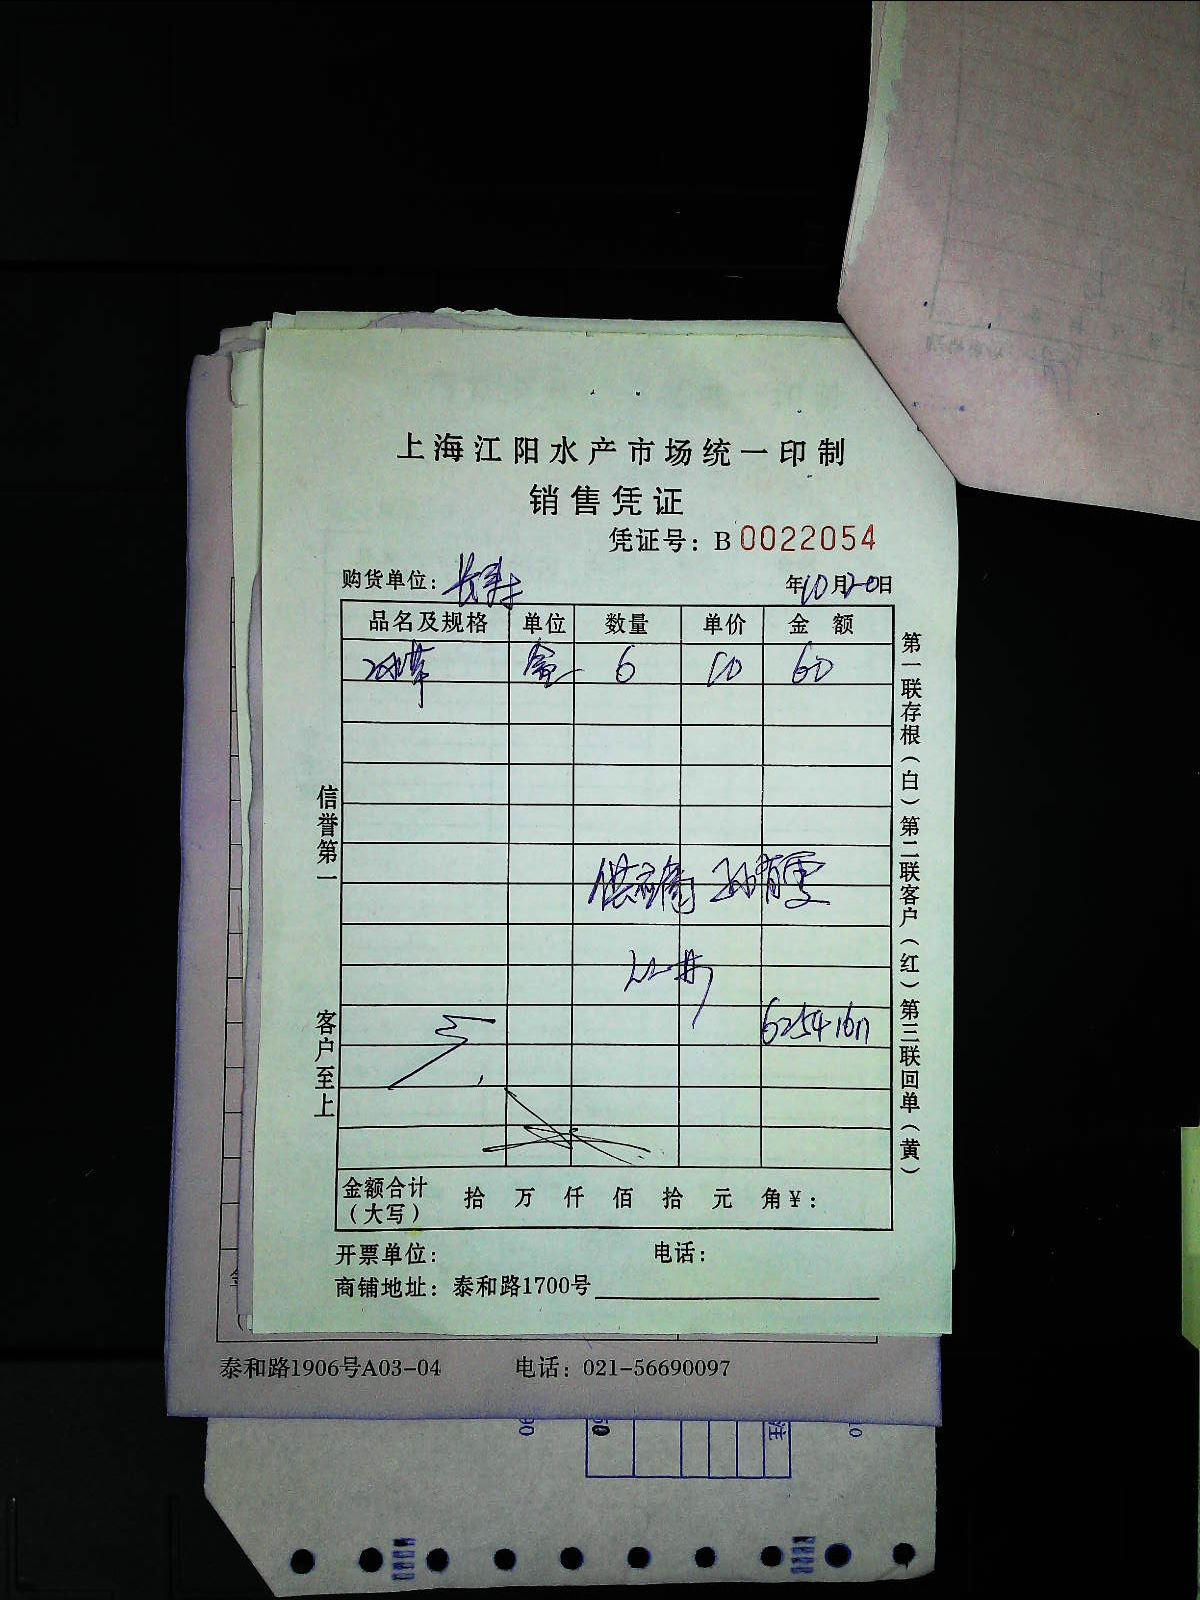 上海江阳水产市场统一印制
销售凭证
凭证号：B 0022054
购货单位：长寿
年10月20日
品名及规格 单位 数量 单价 金额
盒 6 10 60
供应商
江井
62541617
信誉第一
客户至上
第一联存根（白）第二联客户（红）第三联回单（黄）
金额合计（大写） 拾 万 仟 佰 拾 元 角￥：
开票单位： 电话：
商铺地址：泰和路1700号
泰和路1906号A03-04 电话：021-56690097
注